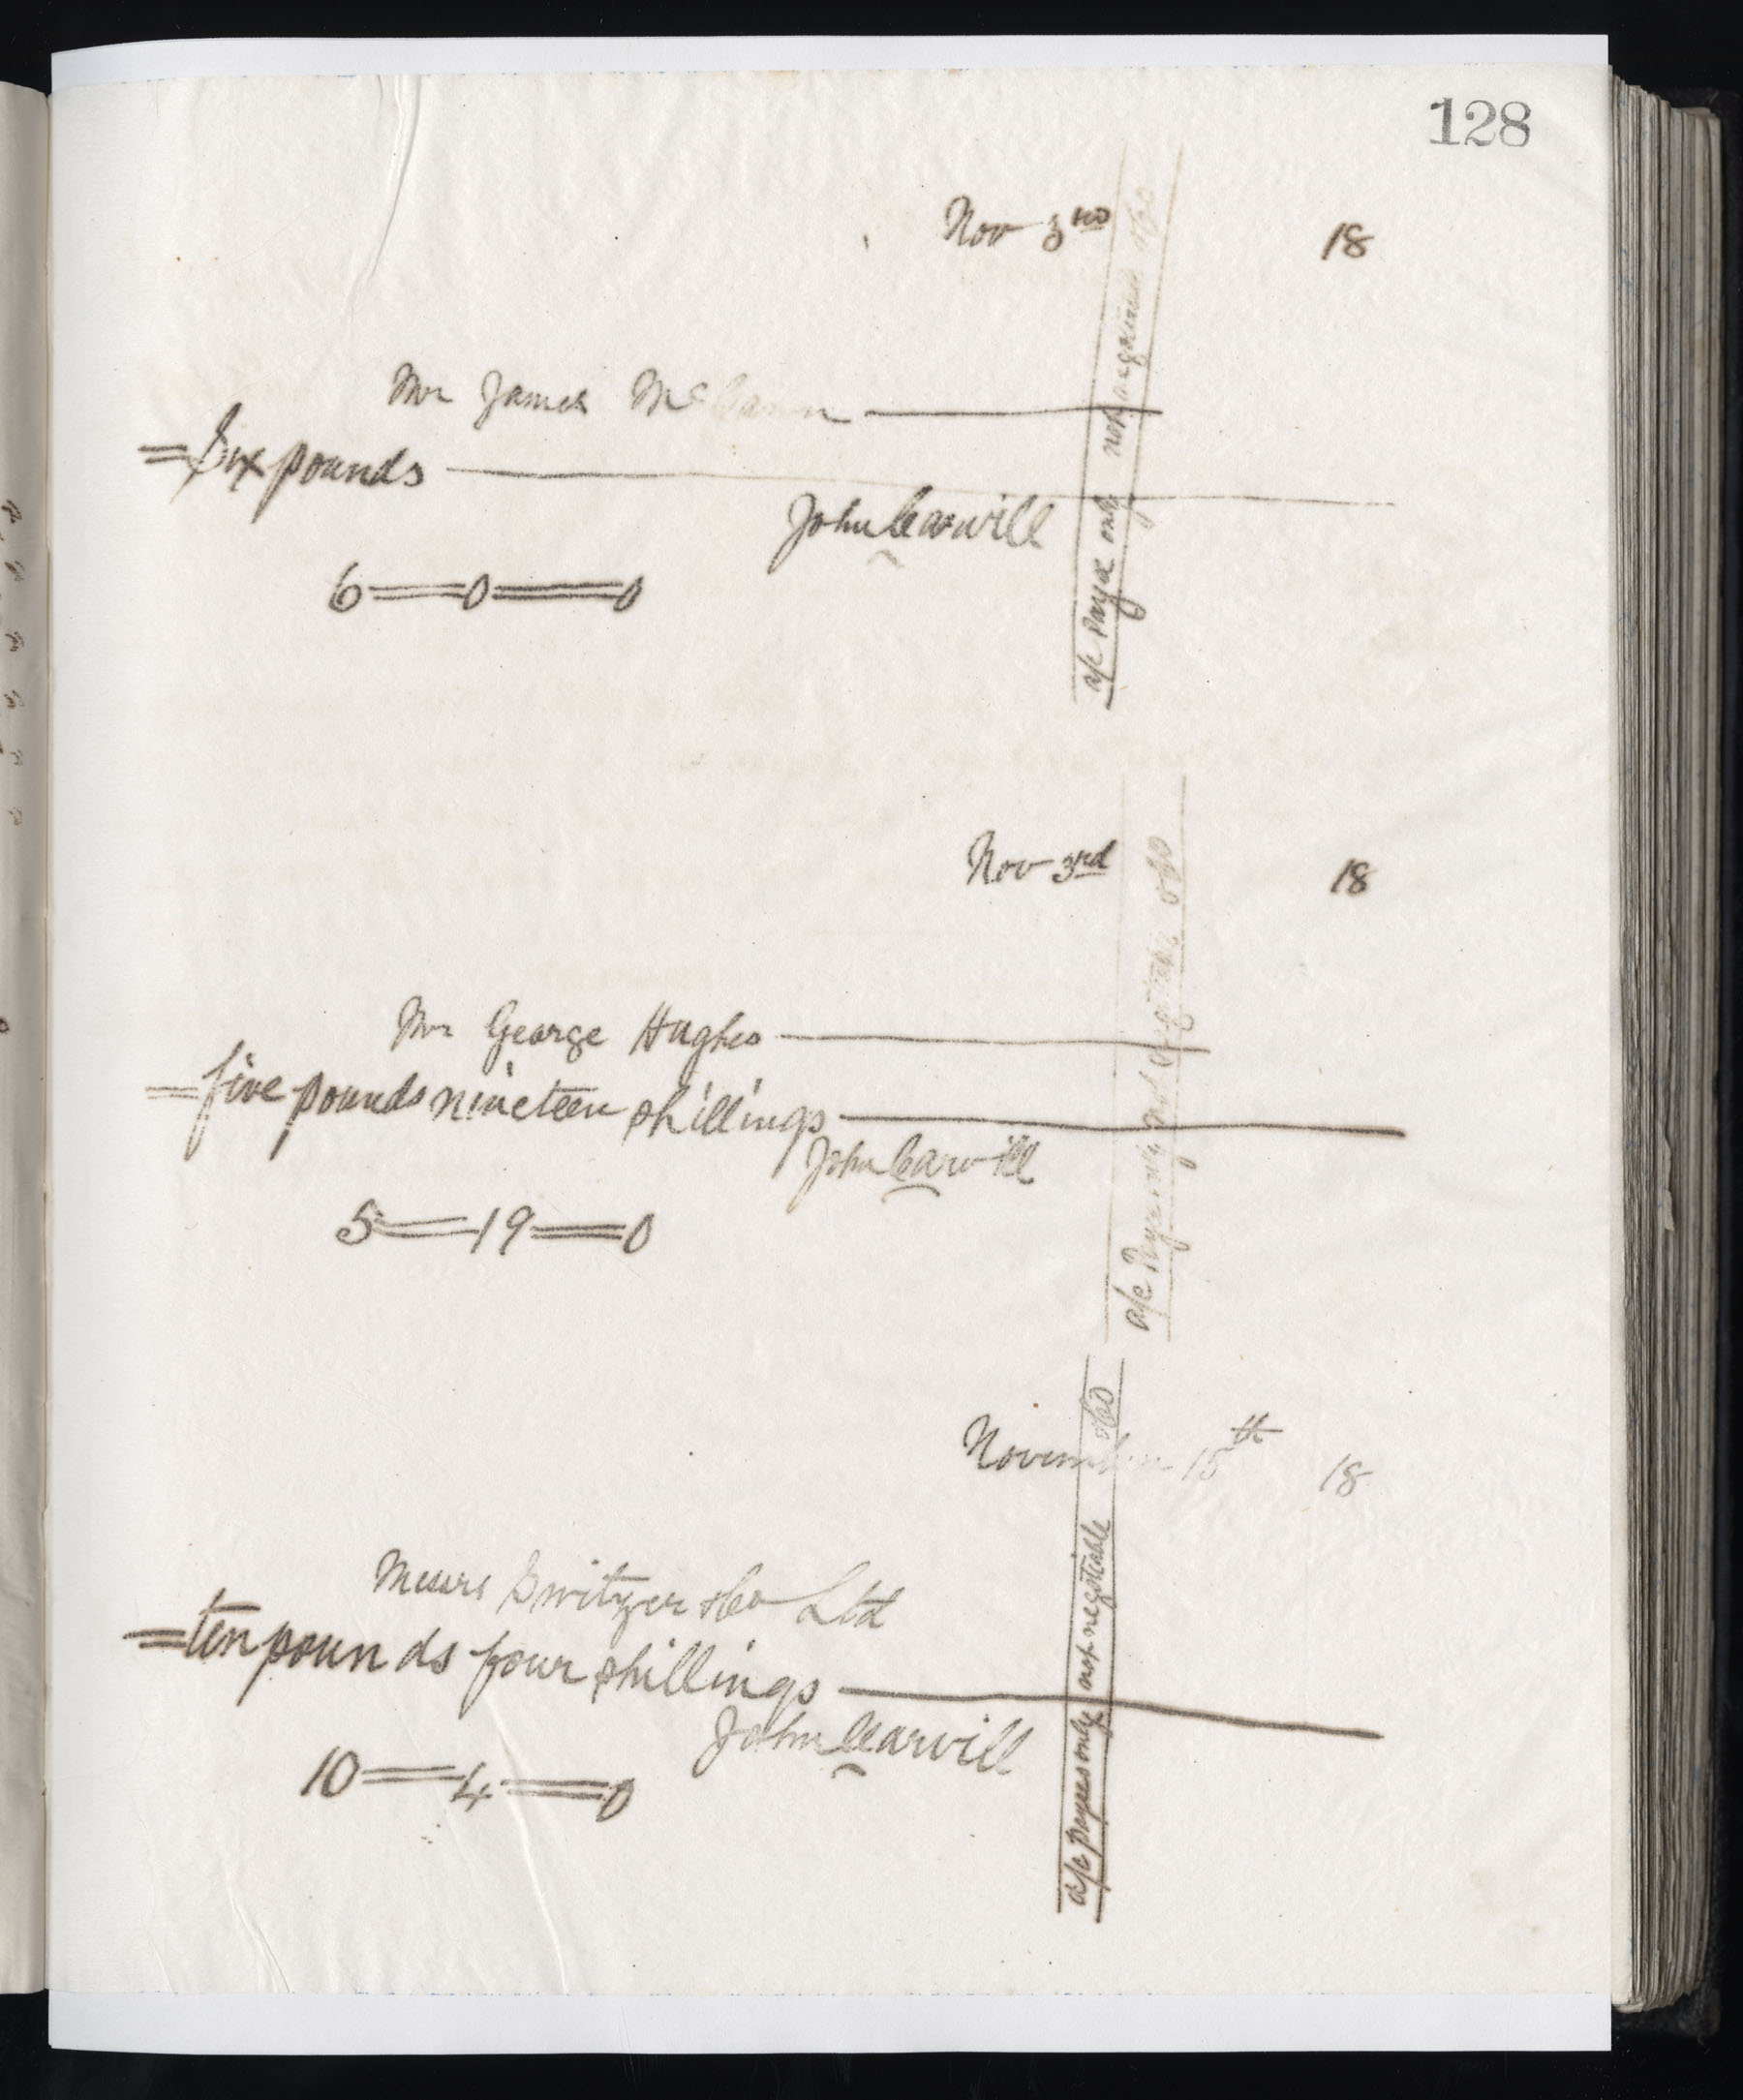 128
Nov 3rd 18
Mr James McCann
= Six pounds
John Carvill
6=0=0
a/c Payee only not negotiable &Co
Nov 3rd 18
Mr George Hughes
= five pounds nineteen shillings
John Carvill
5=19=0
a/c Payee only not negotiable &Co
November 15th 18
Messrs Switzer &Co Ltd
= ten pounds four shillings
John Carvill
10=4=0
a/c payees only not negotiable &Co